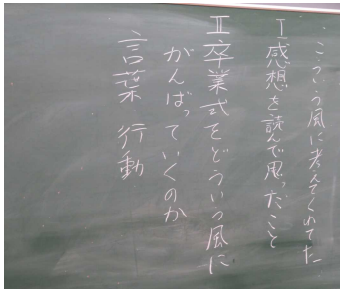 こういう風に考えてくれてた
Ⅰ感想を読んで思ったこと
Ⅱ卒業式をどういう風に
がんばっていくのか
言葉 行動